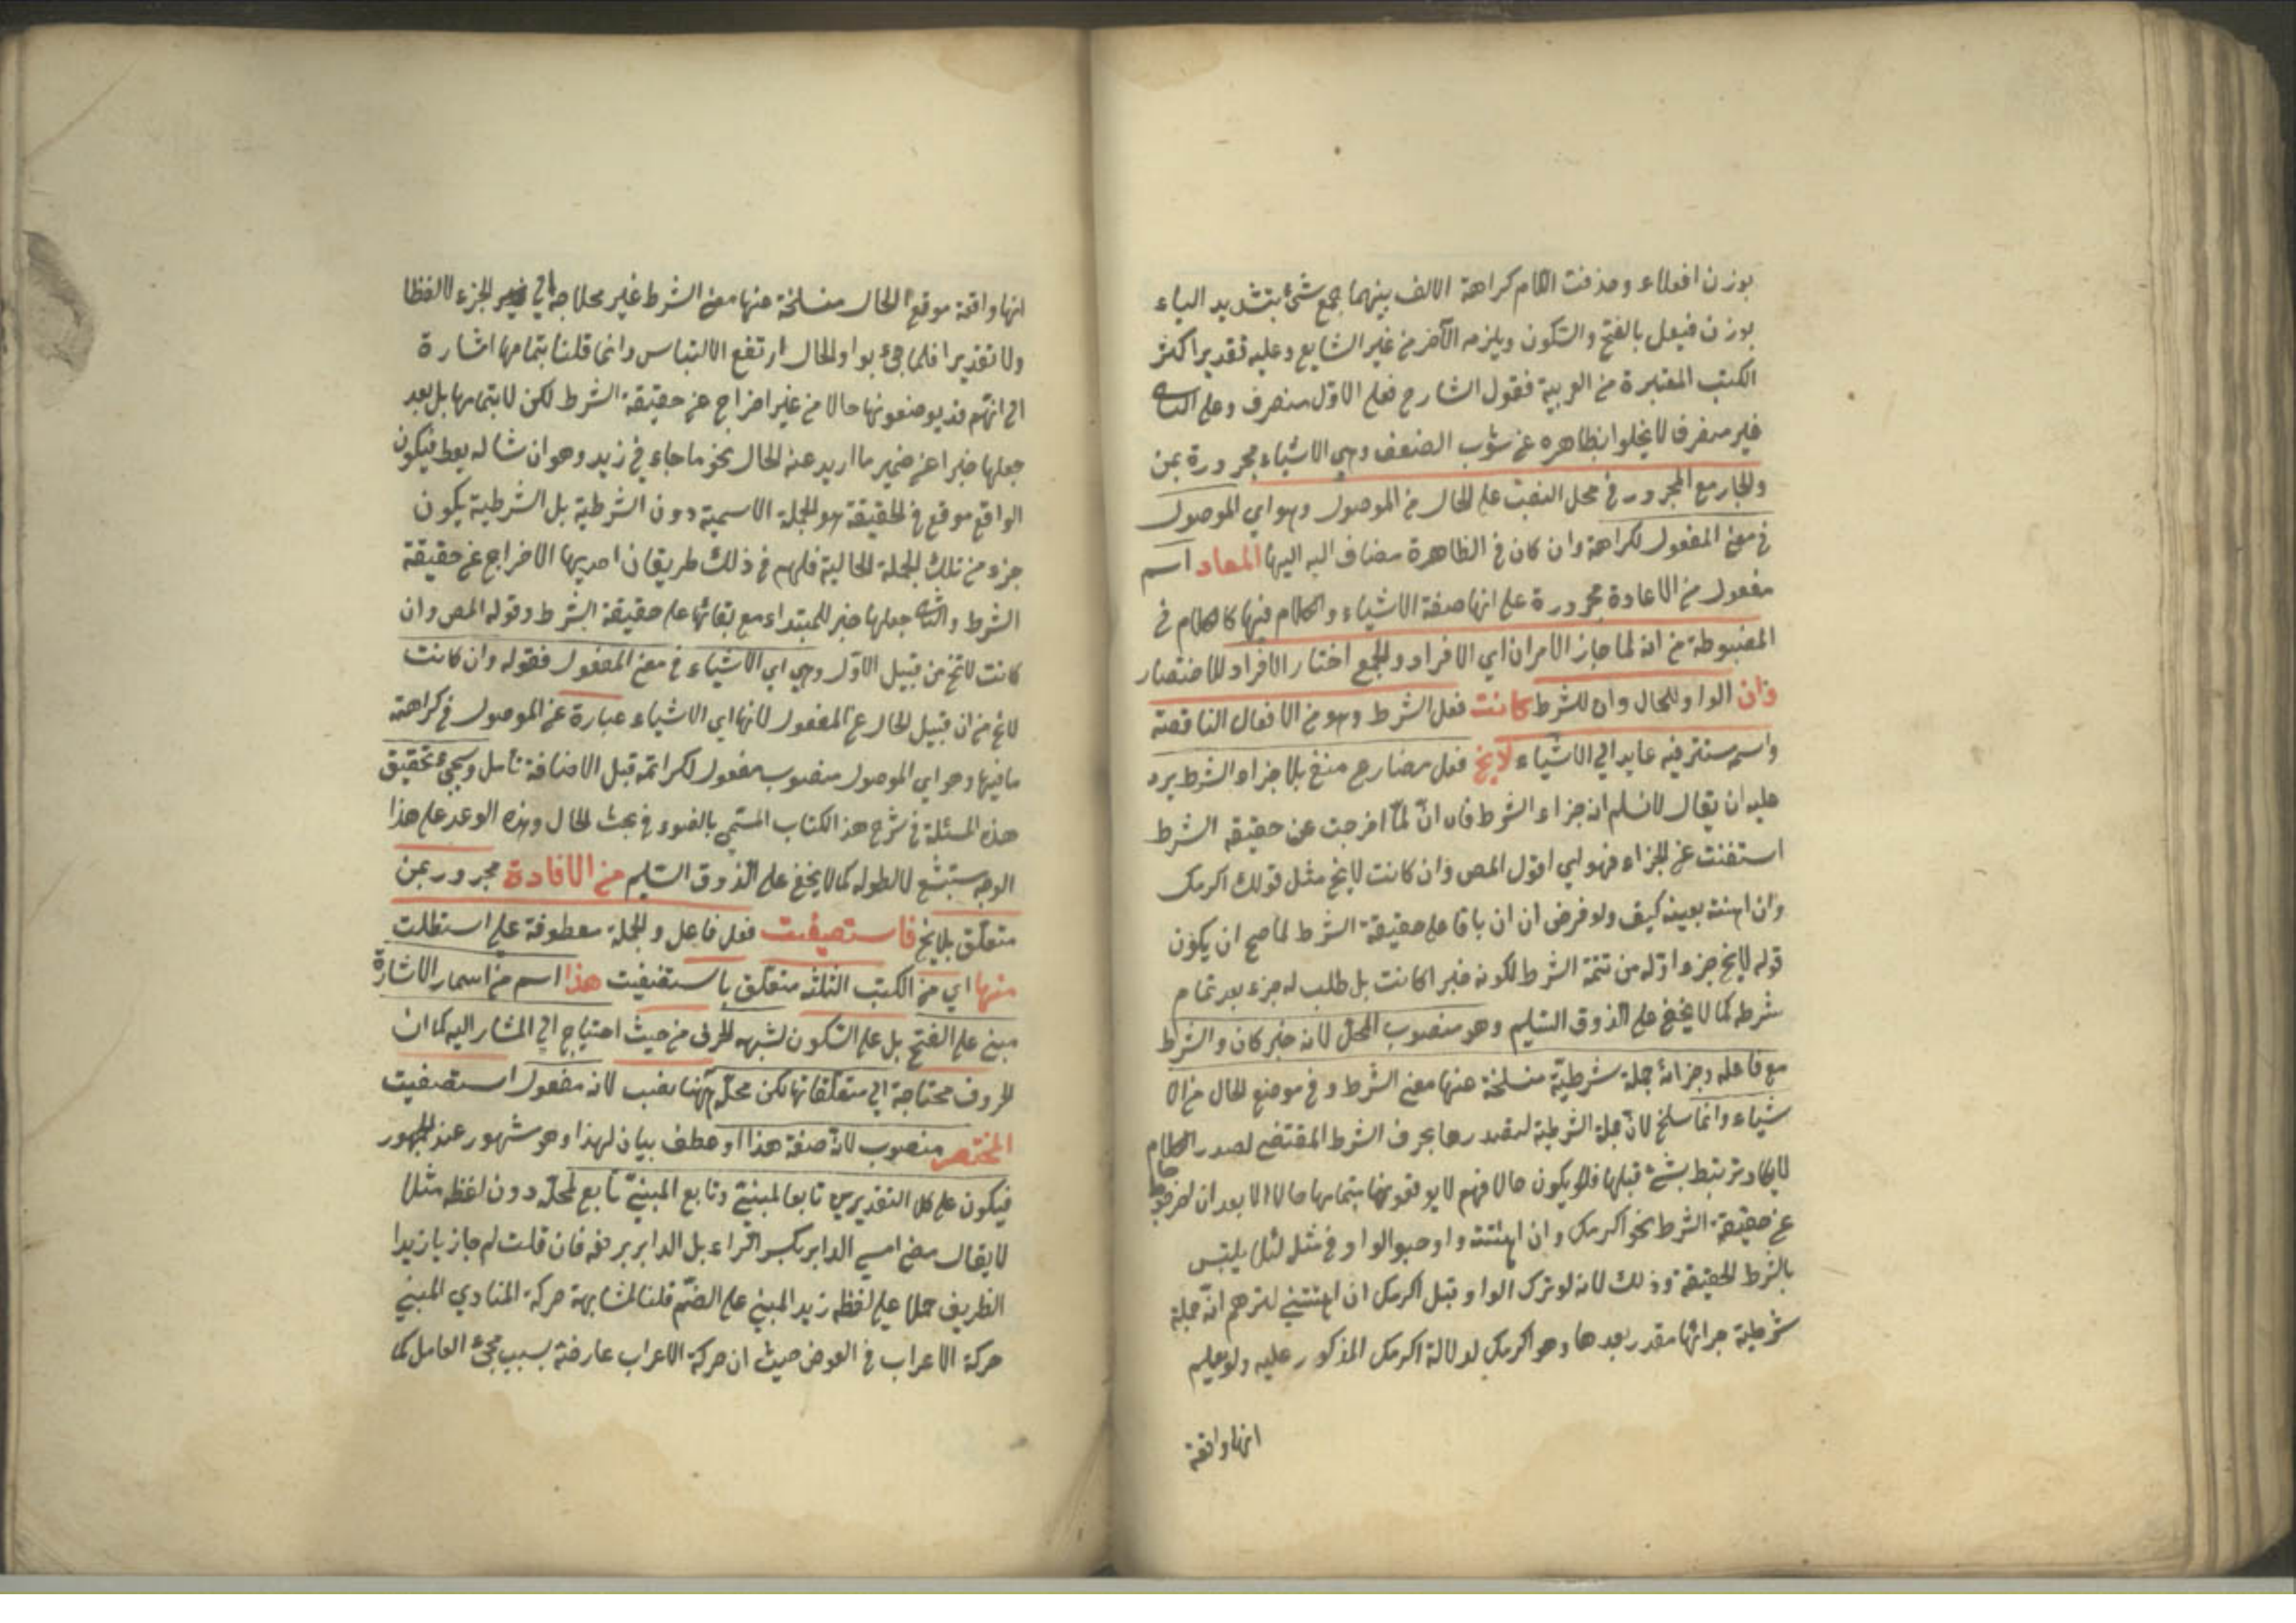 بوزن افعلاء وحذفت اللام كراهة الالف بينهما جمع شئ بتشديد الياء
بوزن فيعل بالفتح والسكون ويلزمه الآخر من غير الشايع وعليه تقدير اكثر
الكتب المعتبرة من العربية فقول الشارح فعلى الاول منصرف وعلى الثاني
غير منصرف لا يخلوا بظاهره عن شوب الضعف وهي الاشياء مجرورة بمن
والجار مع المجرور في محل النصب على الحال من الموصول وهو اي الموصول
في معنى المفعول لكراهة وان كان في الظاهرة مضاف اليه اليها المعاد اسم
مفعول من الاعادة مجرورة على انها صفة الاشياء والكلام فيها كالكلام في
المضبوطة من انه لما جاز الامران اي الافراد والجمع اختار الافراد للاختصار
وان الواو للحال وان للشرط كانت فعل الشرط وهو من الافعال الناقصة
واسمه مستتر فيه عايد الى الاشياء لا يخ فعل مضارع منفي بلا جزاء الشرط يرد
عليه ان يقال لا نسلم انه جزاء الشرط فان ان لما اخرجت عن حقيقة الشرط
استغنت عن الجزاء فهو اقول المص وان كانت لا يخ مثل قولك اكرمك
وان اهنته بعينه كيف ولو فرض ان ان باقا على حقيقة الشرط لما صح ان يكون
قوله لا يخ جزء اوله من تتمة الشرط لكونه خبرا لكانت بل طلب له جزء بعد تمام
شرطه كما لا يخفى على الذوق السليم وهو منصوب المحل لانه خبر كان والشرط
مع فاعله وجزائه جملة شرطية منسلخة عنها معنى الشرط وفي موضع الحال من الا
شياء وانما سلخ لان جملة الشرطية لتصدرها بحرف الشرط المقتضي لصدر الكلام
لا يكاد يرتبط بشئ قبلها فلا يكون حالا فهم لا يوقعونها بتمامها حالا الا بعد ان اخرجوها
عن حقيقة الشرط نحو اكرمك وان اهنتني واوجبوا الواو في مثله لئلا يلتبس
بالشرط الحقيقة وذلك لانه لو ترك الواو وقيل اكرمك ان اهنتني لتوهم انه جملة
شرطية جزائها مقدر بعدها وهو اكرمك لدلالة اكرمك المذكور عليه ولم يعلم
انها واقعة
انها واقعة موقع الحال منسلخة عنها معنى الشرط غير محتاجة الى الجزء لا لفظا
ولا تقديرا فلما جئ بواو الحال ارتفع الالتباس وانما قلنا بتمامها اشارة
الى انهم قد يوضعونها حالا من غير اخراج عن حقيقة الشرط لكن لا بتمامها بل بعد
جعلها خبرا عن ضمير ما اريد عنه الحال نحو ما جاء في زيد وهو ان شاله يعط فيكون
الواقع موقع في الحقيقة هو الجملة الاسمية دون الشرطية بل الشرطية يكون
جزء من تلك الجملة الحالية فلهم في ذلك طريقان احديها الاخراج عن حقيقة
الشرط والثاني جعلها خبر للمبتداء مع بقائها على حقيقة الشرط وقوله المص وان
كانت لا تخ من قبيل الاول وهي اي الاشياء في معنى المفعول فقوله وان كانت
لا تخ من ان قبيل الحال عن المفعول لانها اي الاشياء عبارة عن الموصول في كراهته
ما فيها وهو اي الموصول منصوب مفعول لكراهته قبل الاضافة تامل وسيجئ تحقيق
هذه المسئلة في شرح هذ الكتاب المسمى بالضوء في بحث الحال وهذه الوعد على هذا
الوجه ستبشع لا لطوله كما لا يخفى على الذوق السليم من الافادة مجرور بمن
متعلق بلا يخ فاستصفيت فعل فاعل والجملة معطوفة على استطلت
منها اي من الكتب الثلثة متعلق باستصفيت هذا اسم من اسماء الاشارة
مبني على الفتح بل على السكون لشبهه الحرف من حيث احتياج الى المشار اليه كما ان
الحروف محتاجة الى متعلقاتها لكن محله ههنا نصب لانه مفعول استصفيت
المختصر منصوب لانه صفة هذا او عطف بيان لهذا وهو مشهور عند الجمهور
فيكون على كلا التقديرين تابعا لمبنيّ وتابع المبنيّ تابع لمحله دون لفظه مثلا
لا يقال مضى امس الدابر بكسر الراء بل الدابر برفعه فان قلت لم جاز يا زيدا
الظريف حملا على لفظه زيد المبني على الضم قلنا لمشابهة حركة المنادي المبني
حركة الاعراب في العوض حيث ان حركة الاعراب عارضة بسبب مجئ العامل كما